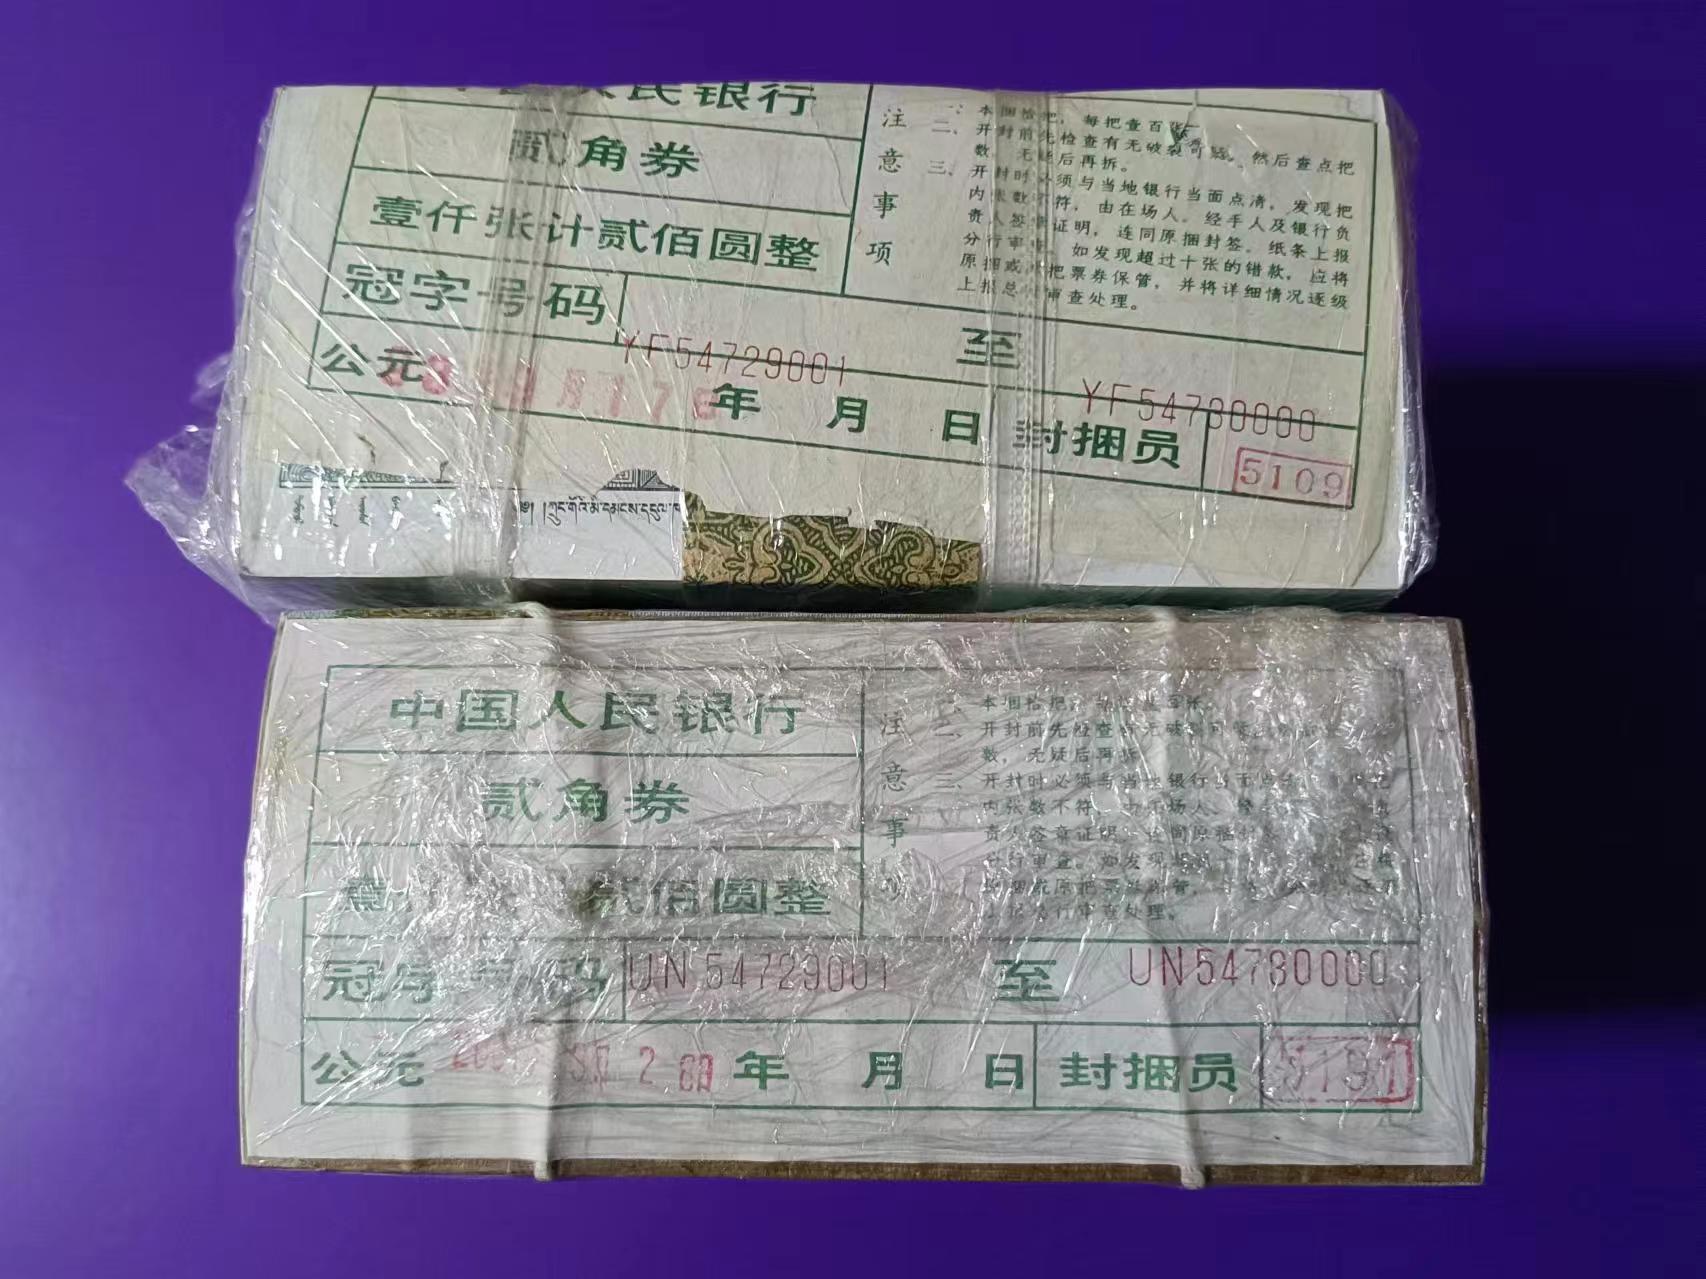 中国人民银行
贰角券
壹仟张计贰佰圆整
冠字号码
YF54729001
至
YF54730000
公元
年 月 日
封捆员
5109
注意事项
一、本捆拾把,每把查百张。
二、开封前先检查有无破裂可疑,然后查点把
数,无疑后再拆。
三、开封时必须与当地银行当面点清,发现把
内张数不符,由在场人、经手人及银行负
责人签章证明,连同原捆封签、纸条上报
分行审查,如发现超过十张的错款,应将
原捆或原把票券保管,并将详细情况逐级
上报总行审查处理。
中国人民银行
贰角券
贰佰圆整
冠字号码
UN54729001
至
UN54730000
公元
年 月 日
封捆员
注意事
本捆拾把
开封前先检查
数,无疑后再拆
三、开封时必须与当地银行当面点
内张数不符
责人签章证明
审查处理。